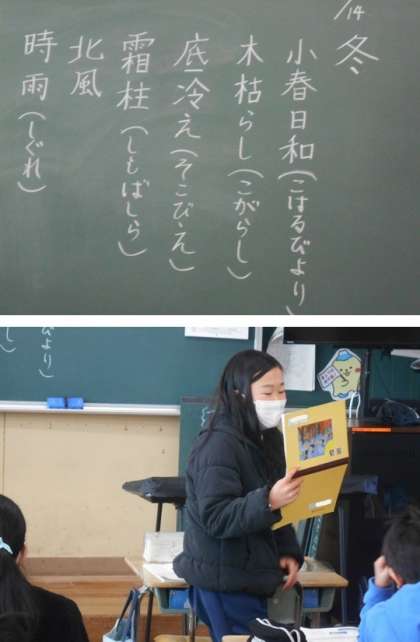 /14
冬
小春日和(こはるびより)
木枯らし(こがらし)
底冷え(そこびえ)
霜柱(しもばしら)
北風
時雨(しぐれ)
びより)
し)